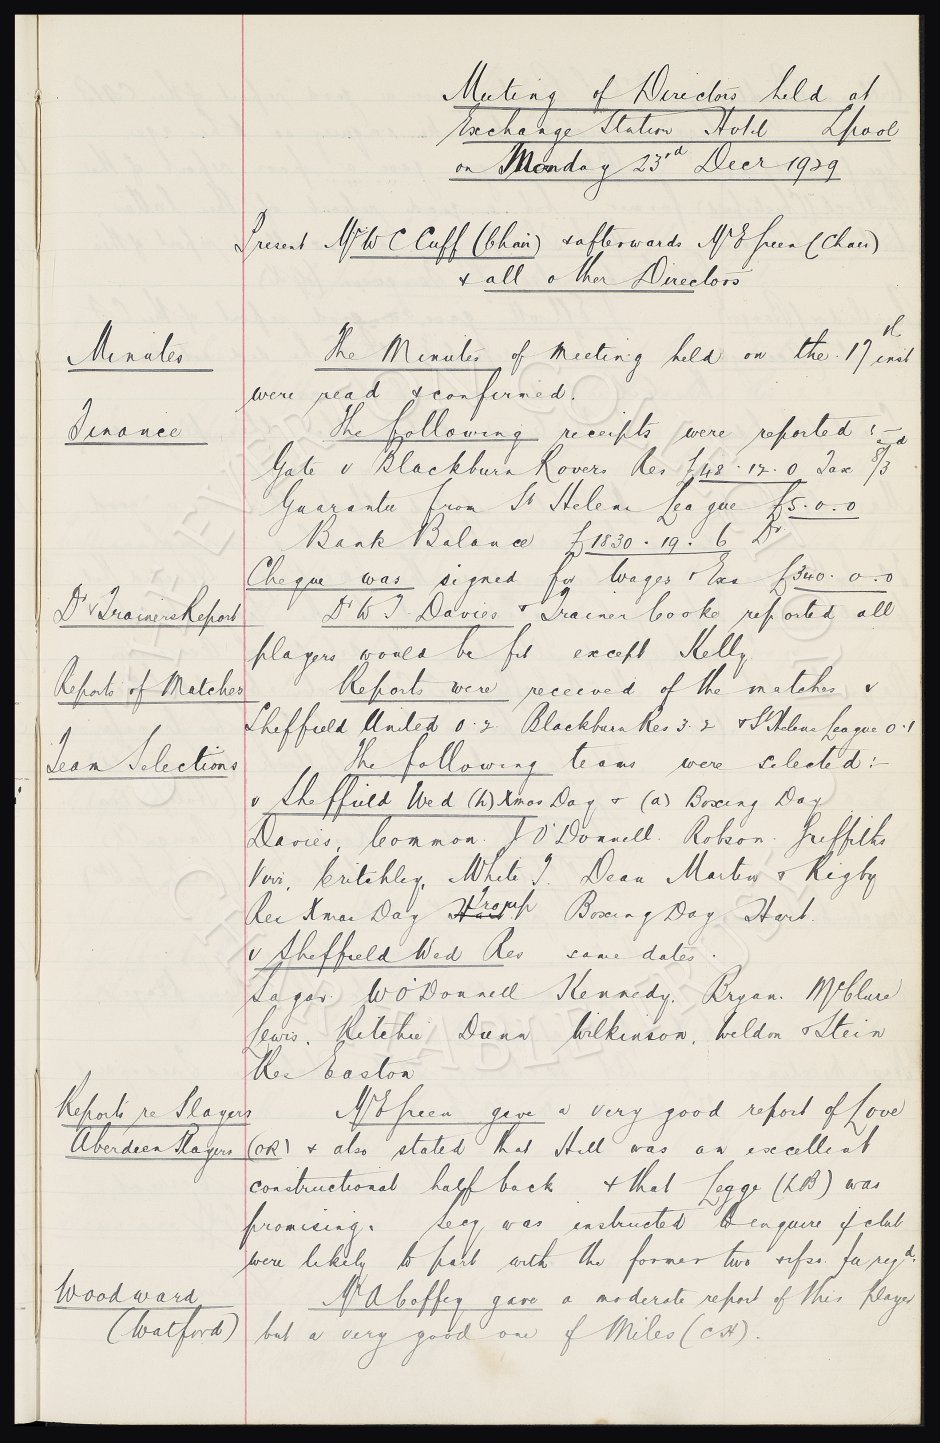 Meeting of Directors held at
Exchange Station Hotel Lpool
on Monday 23rd Decr 1929
Present Mr W C Cuff (Chair) & afterwards Mr E Green (Chair)
& all other Directors
Minutes The Minutes of meeting held on the 17th inst
were read & confirmed.
Finance The following receipts were reported :-
Gate v Blackburn Rovers Res £48.12.0 Tax 8/3
Guarantee from St Helens League £5.0.0
Bank Balance £1830.19.6 Dr.
Cheque was signed for Wages & Exs £340.0.0
Dr & Trainers Report Dr W J Davies & Trainer Cooke reported all
players would be fit except Kelly
Reports of Matches Reports were received of the matches v
Sheffield United 0-2 Blackburn Res 3-2 & St Helens League 0-1
Team Selections The following teams were selected :-
v Sheffield Wed (h) Xmas Day & (a) Boxing Day
Davies, Common. J O'Donnell. Robson. Griffiths
Voisi, Critchley, White T. Dean Martin & Rigby
Res Xmas Day Hart Troup Boxing Day Hart.
v Sheffield Wed Res same dates.
Sagar. W O'Donnell Kennedy. Bryan. McClure
Lewis. Ritchie Dunn Wilkinson, Weldon & Stein
Res Easton
Reports re Players Mr E Green gave a very good report of Love
Aberdeen Players (OR) & also stated that Hill was an excellent
constructional half back & that Legge (LB) was
promising. Secy was instructed to enquire if club
were likely to part with the former two & if so. fee reqd.
Woodward Mr A Coffey gave a moderate report of this player
(Watford) but a very good one of Miles (CH).